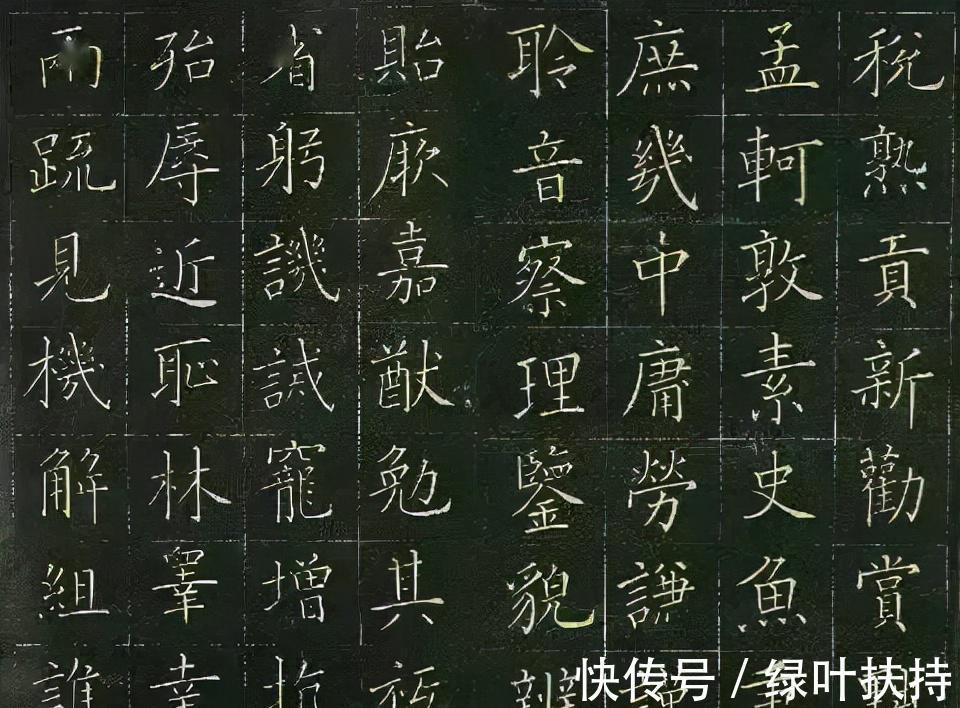 稅熟貢新勸賞
孟軻敦素史魚
庶幾中庸勞謙
聆音察理鑒貌辨
貽厥嘉猷勉其祗
省躬譏誡寵增抗
殆辱近恥林皋幸
兩疏見機解組誰
快传号 / 绿叶扶持